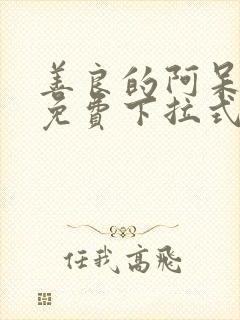 善良的阿呆
免费下拉式
任我高飛